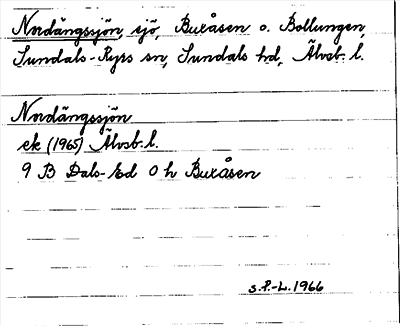 Nordängssjön, sjö, Buråsen o. Bollungen,
Sundals-Ryrs sn, Sundals hd, Älvsb. l.
Nordängssjön
ek (1965) Älvsb. l.
9 B Dals-Ed 0 h Buråsen
S.P.-L. 1966